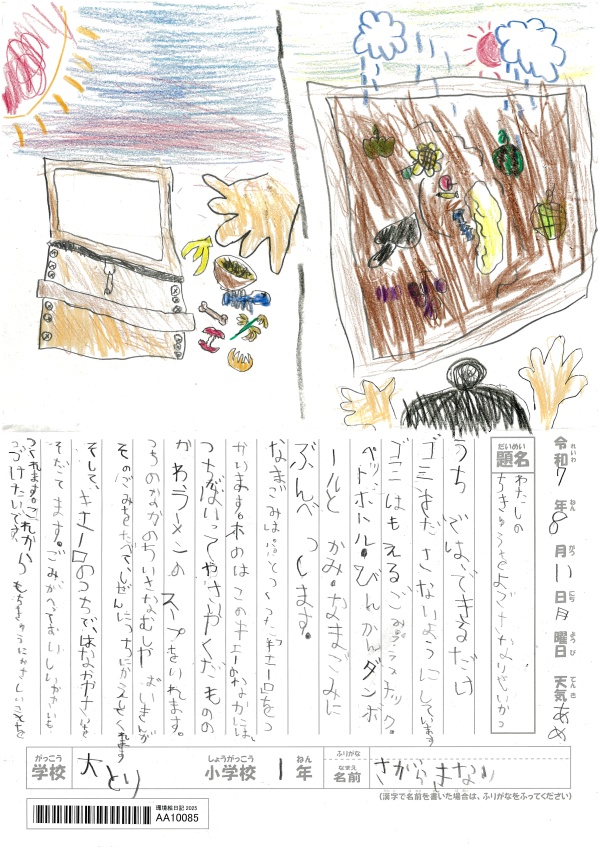 令和7年8月11日月曜日 天気 あめ
れいわ ねん がつ にち ようび てんき
だいめい
題名
わたしの
ちきゅうをよごさないせいかつ
うちではできるだけ
ゴミをださないようにしています
ゴミはもえるごみ。プラスチック。
ペットボトル。びんかんダンボ
ールとかみ。なまごみに
ぶんべつします。
なまごみはパパとつくったキエーロをつ
かいます。木のはこのキエーロのなかには、
つちがはいってやさいやくだものの
かわ。ラーメンのスープをいれます。
つちのなかのちいさなむしやばいきんが
そのごみをたべて、しぜんにつちにかえしてくれます
そして、キエーロのつちで、はなややさいを
そだてます。ごみがへっておいしいやさいも
つくれます。これからもちきゅうにやさしいことを
つづけたいです。
がっこう
学校
大とり
しょうがっこう
小学校
1
ねん
年
ふりがな
なまえ
名前
さがら
(漢字で名前を書いた場合は、ふりがなをふってください)
環境絵日記 2025
AA10085